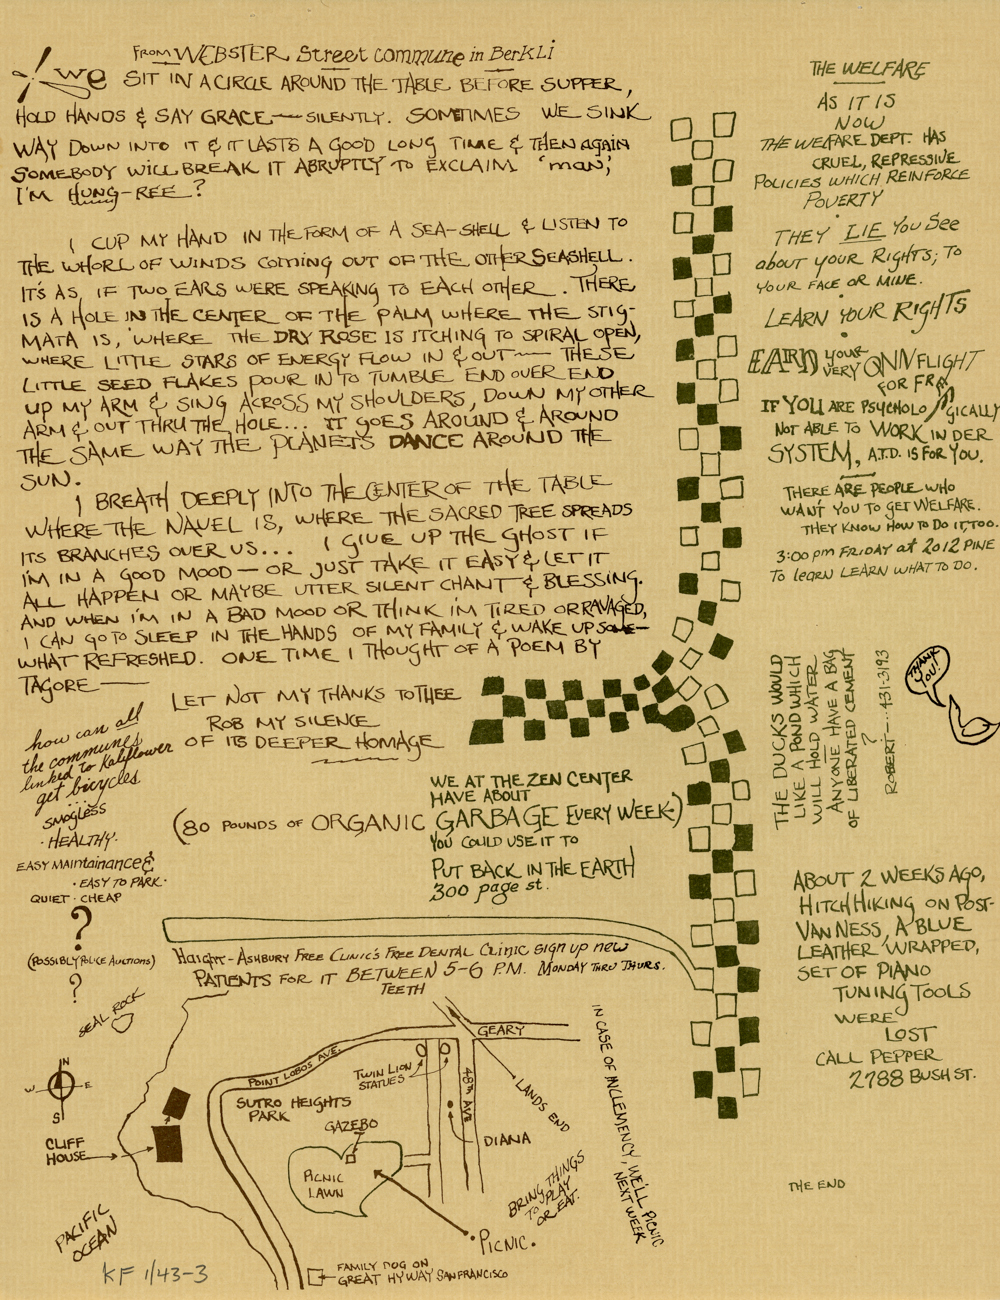 FROM WEBSTER Street commune in BerkLi
we SIT IN A CIRCLE AROUND THE TABLE BEFORE SUPPER,
HOLD HANDS & SAY GRACE— SILENTLY. SOMETIMES WE SINK
WAY DOWN INTO IT & IT LASTS A GOOD LONG TIME & THEN again
SOMEBODY WILL BREAK IT ABRUPTLY TO EXCLAIM 'man,'
I'M HUNG-REE?
I CUP MY HAND IN THE FORM OF A SEA-SHELL & LISTEN TO
THE WHORL OF WINDS coming OUT OF THE OTHER SEASHELL.
IT'S AS IF TWO EARS WERE SPEAKING TO EACH OTHER. THERE
IS A HOLE IN THE CENTER OF THE PALM WHERE THE STIG-
MATA IS, WHERE THE DRY ROSE IS ITCHING TO SPIRAL OPEN,
WHERE LITTLE STARS OF ENERGY FLOW IN & OUT— THESE
LITTLE SEED FLAKES POUR IN TO TUMBLE END OVER END
UP MY ARM & SING ACROSS MY SHOULDERS, DOWN MY OTHER
ARM & OUT THRU THE HOLE... IT GOES AROUND & AROUND
THE SAME WAY THE PLANETS DANCE AROUND THE
SUN.
I BREATH DEEPLY INTO THE CENTER OF THE TABLE
WHERE THE NAVEL IS, WHERE THE SACRED TREE SPREADS
ITS BRANCHES OVER US... I GIVE UP THE GHOST IF
I'M IN A GOOD MOOD — OR JUST TAKE IT EASY & LET IT
ALL HAPPEN OR MAYBE UTTER SILENT CHANT & BLESSING.
AND WHEN I'M IN A BAD MOOD OR THINK I'M TIRED OR RAVAGED,
I CAN GO TO SLEEP IN THE HANDS OF MY FAMILY & WAKE UP SOME—
WHAT REFRESHED. ONE TIME I THOUGHT OF A POEM BY
TAGORE—
LET NOT MY THANKS TO THEE
ROB MY SILENCE
OF ITS DEEPER HOMAGE
how can all
the communes
linked to Kaliflower
get bicycles
smogless
· HEALTHY ·
EASY MAINtainance &
· EASY TO PARK ·
QUIET · CHEAP
?
(POSSIBLY POLICE AUCTIONS)
?
WE AT THE ZEN CENTER
HAVE ABOUT
(80 POUNDS OF ORGANIC GARBAGE EVERY WEEK)
YOU COULD USE IT TO
PUT BACK IN THE EARTH
300 page st.
Haight-ASHBURY FREE CLINIC'S FREE DENTAL CLINIC sign up new
PATIENTS FOR IT BETWEEN 5-6 P.M. MONDAY THRU THURS.
TEETH
SEAL ROCK
N
W E
S
CLIFF
HOUSE
PACIFIC
OCEAN
KF 1/43-3
POINT LOBOS AVE.
GEARY
TWIN LION
STATUES
SUTRO HEIGHTS
PARK
48th AVE
LANDS END
GAZEBO
DIANA
PICNIC
LAWN
BRING THINGS
TO PLAY
OR EAT.
· PICNIC.
FAMILY DOG ON
GREAT HYWAY SAN FRANCISCO
IN CASE OF INCLEMENCY, WE'LL PICNIC
NEXT WEEK
THE WELFARE
AS IT IS
NOW
THE WELFARE DEPT. HAS
CRUEL, REPRESSIVE
POLICIES WHICH REINFORCE
POVERTY
THEY LIE YOU See
about YOUR RIGHTS; TO
YOUR FACE OR MINE.
LEARN YOUR RIGHTS
EARN YOUR VERY OWN FLIGHT
FOR FRA
IF YOU ARE PSYCHOLO GICALLY
NOT ABLE TO WORK IN DER
SYSTEM, A.T.D. IS FOR YOU.
THERE ARE PEOPLE WHO
WANT YOU TO get WELFARE.
THEY KNOW HOW TO DO IT, TOO.
3:00 pm FRIDAY at 2012 PINE
TO learn LEARN WHAT TO DO.
THE DUCKS WOULD
LIKE A POND WHICH
WILL HOLD WATER
ANYONE HAVE A BAG
OF LIBERATED CEMENT
?
ROBERT—...431-3193
THANK
YOU!
ABOUT 2 WEEKS AGO,
HITCHHIKING ON POST-
VAN NESS, A BLUE
LEATHER WRAPPED,
SET OF PIANO
TUNING TOOLS
WERE
LOST
CALL PEPPER
2788 BUSH ST.
THE END